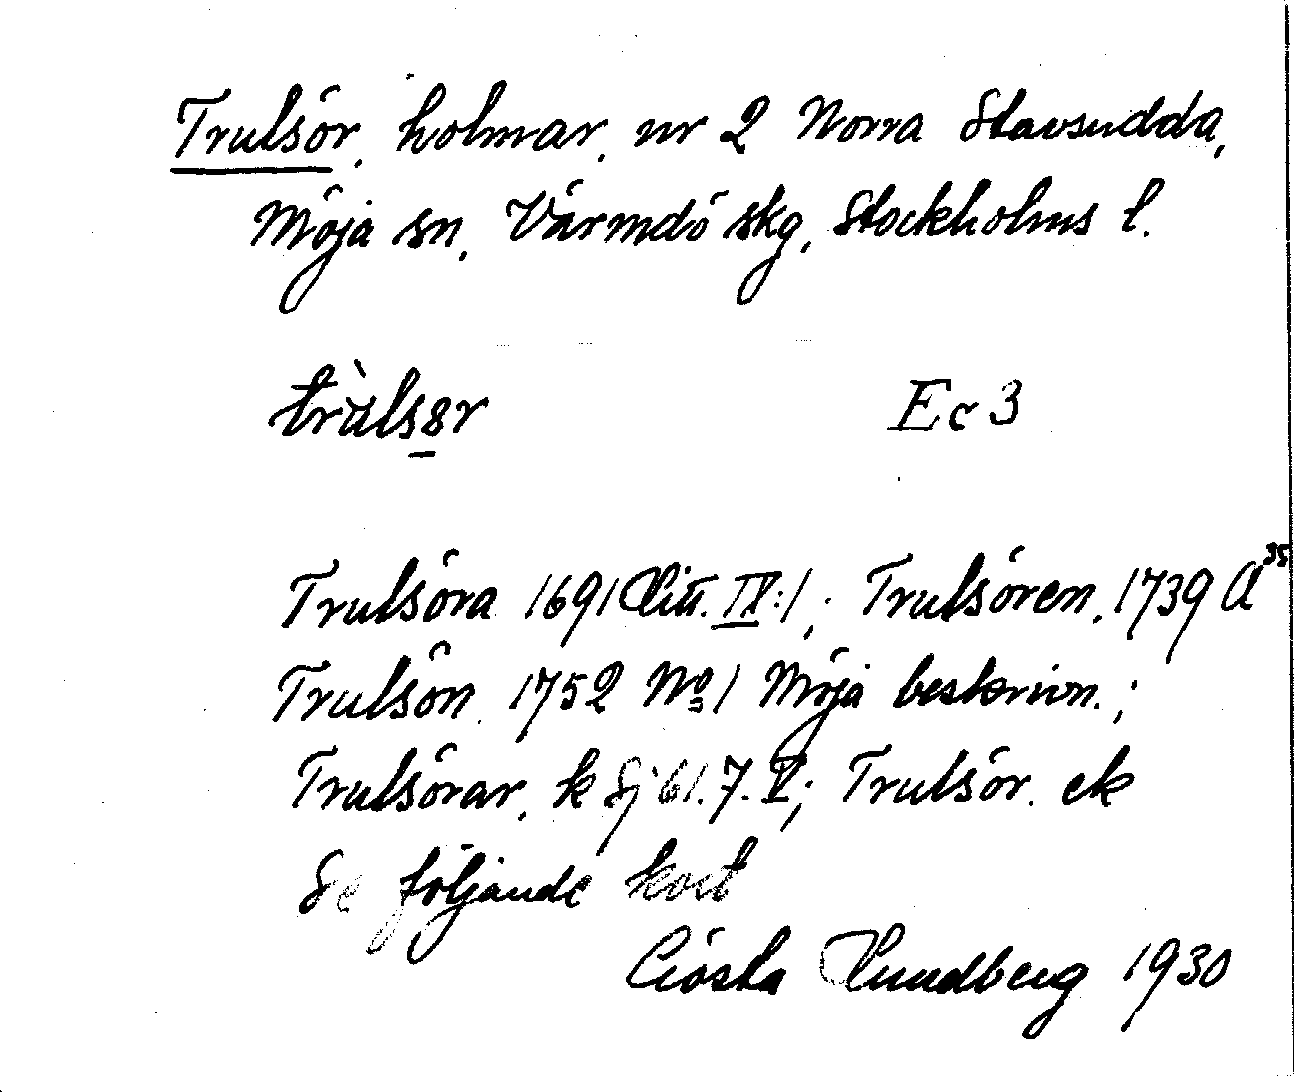 Trulsör, holmar, nr 2 Norra Stavsudda,
Möja sn, Värmdö skg, Stockholms l.
trùlsør Ec3
Trulsöra 1691 Litt. IX:1,; Trulsören, 1739 A³⁵
Trulsön, 1752 No 1 Möja beskrivn.;
Trulsörar, k Sj 61.7.V; Trulsör. ek
Se följande kort
Gösta Lundberg 1930